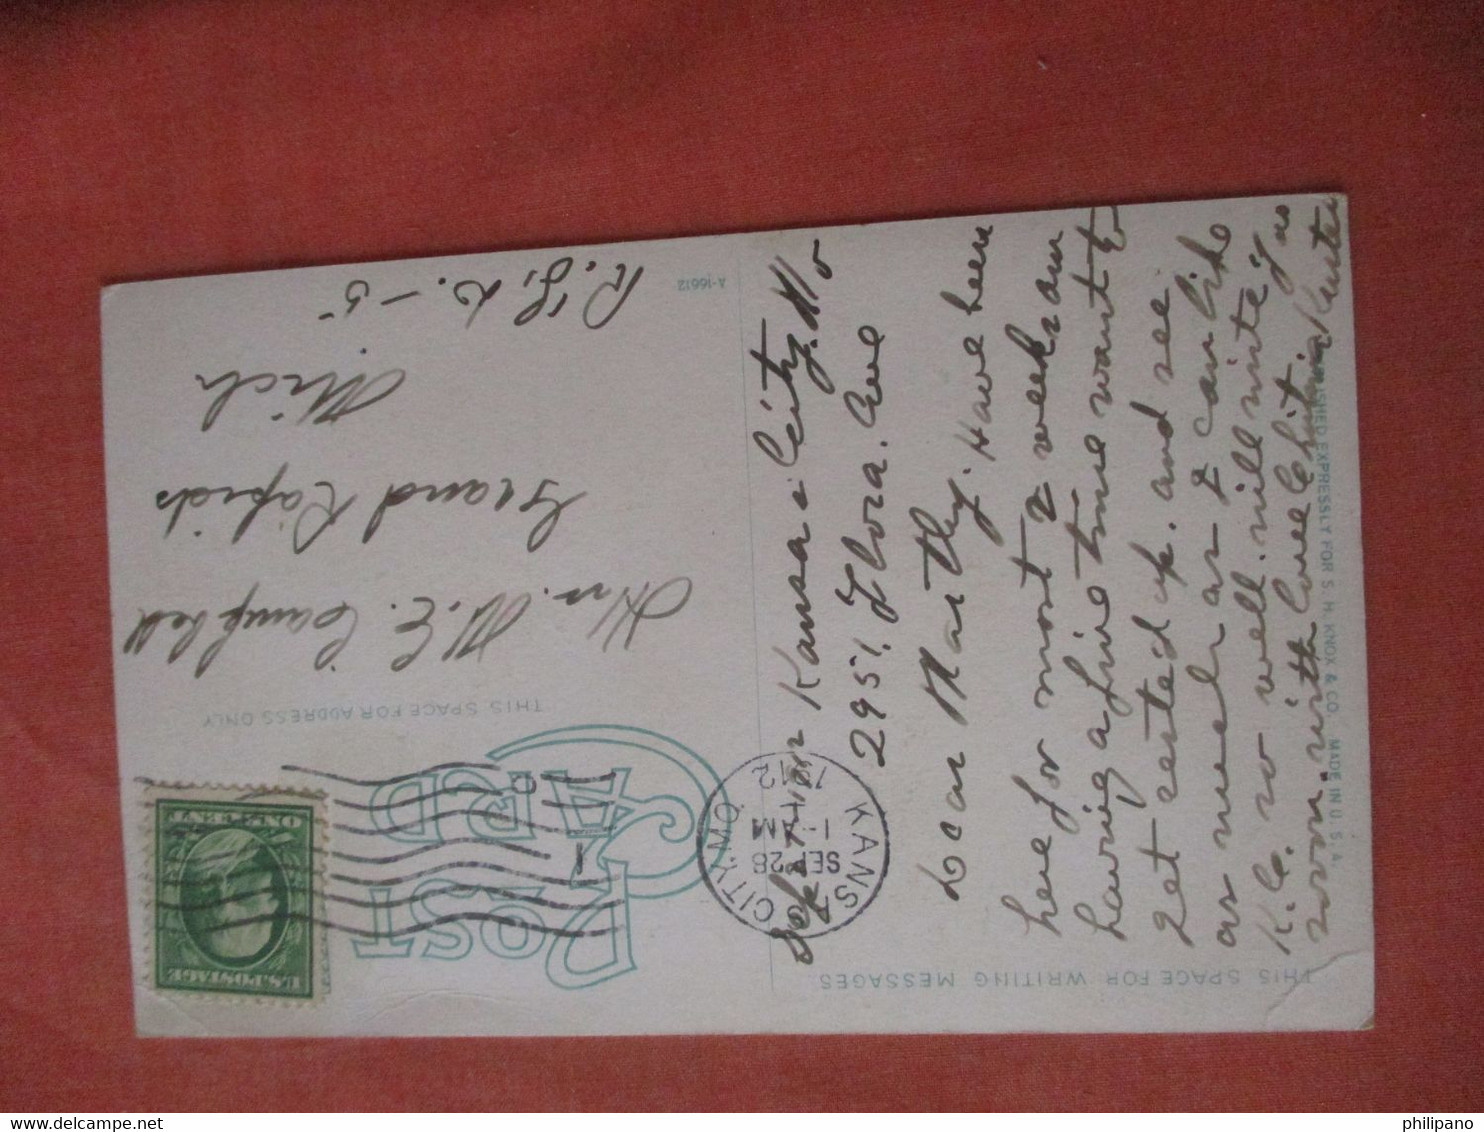 THIS SPACE FOR WRITING MESSAGES
Kansas City, Mo
2951 Flora. Ave
Dear Marthy. Have been
here for most 2 weeks am
having a fine time want to
get rested up. and see
as much as I can like
K.C. so well. will write you
soon. with love
PUBLISHED EXPRESSLY FOR S. H. KNOX & CO. MADE IN U. S. A.
POST CARD
THIS SPACE FOR ADDRESS ONLY
U.S. POSTAGE
ONE CENT
KANSAS CITY, MO.
SEP 28
1-AM
1912
Mrs. M. E. Campbell
Grand Rapids
Mich.
R.F.D. - 5
A-16612
philipano